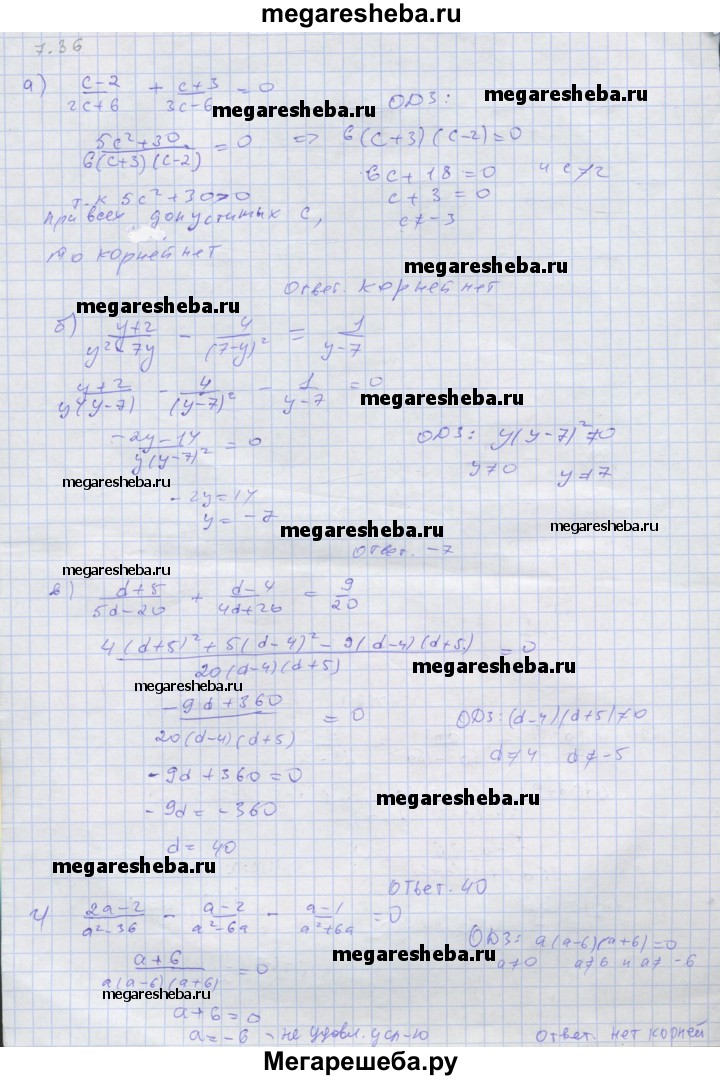 megaresheba.ru
7.36
а) (c-2)/(2c+6) + (c+3)/(3c-6) = 0
megaresheba.ru
megaresheba.ru
ОДЗ:
(5c²+30)/(6(c+3)(c-2)) = 0 => 6(c+3)(c-2)=0
6c+18=0 и c≠2
т.к 5c²+30>0
c+3=0
при всех допустимых c,
c≠-3
то корней нет
megaresheba.ru
Ответ. корней нет
megaresheba.ru
б) (y+2)/(y²-7y) - 4/(7-y)² = 1/(y-7)
(y+2)/(y(y-7)) - 4/(y-7)² - 1/(y-7) = 0
megaresheba.ru
(-2y-14)/(y(y-7)²) = 0
ОДЗ: y(y-7)²≠0
y≠0 y≠7
megaresheba.ru
-2y=14
y=-7
megaresheba.ru
megaresheba.ru
Ответ. -7
megaresheba.ru
в) (d+5)/(5d-20) + (d-4)/(4d+20) = 9/20
(4(d+5)²+5(d-4)²-9(d-4)(d+5))/(20(d-4)(d+5)) = 0
megaresheba.ru
megaresheba.ru
(-9d+360)/(20(d-4)(d+5)) = 0
ОДЗ: (d-4)(d+5)≠0
d≠4 d≠-5
-9d+360=0
megaresheba.ru
-9d=-360
d=40
megaresheba.ru
Ответ. 40
г) (2a-2)/(a²-36) - (a-2)/(a²-6a) - (a-1)/(a²+6a) = 0
ОДЗ: a(a-6)(a+6)=0
a≠0 a≠6 и a≠-6
megaresheba.ru
(a+6)/(a(a-6)(a+6)) = 0
megaresheba.ru
megaresheba.ru
a+6=0
a=-6 - не удовл. усл-ю
Ответ. нет корней
Мегарешеба.ру